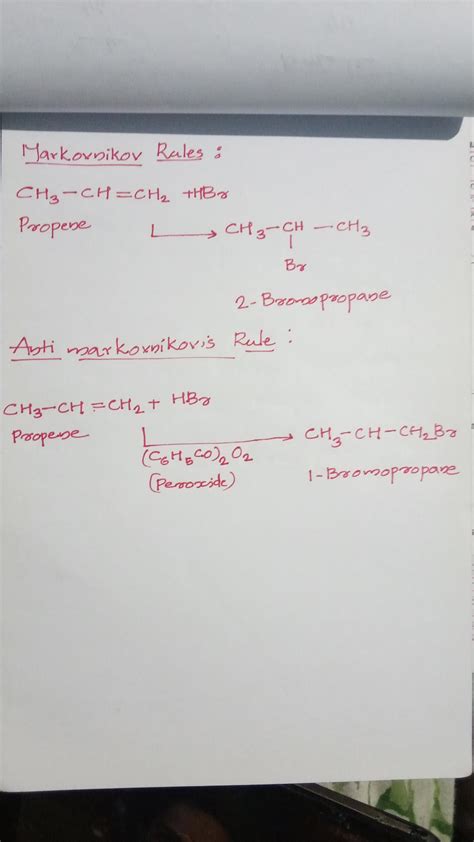 Markovnikov Rules :
CH3-CH=CH2 +HBr
Propene
CH3-CH-CH3
Br
2-Bromopropane
Anti markovnikov's Rule :
CH3-CH=CH2 + HBr
Propene
(C6H5CO)2O2
(Peroxide)
CH3-CH-CH2Br
1-Bromopropane